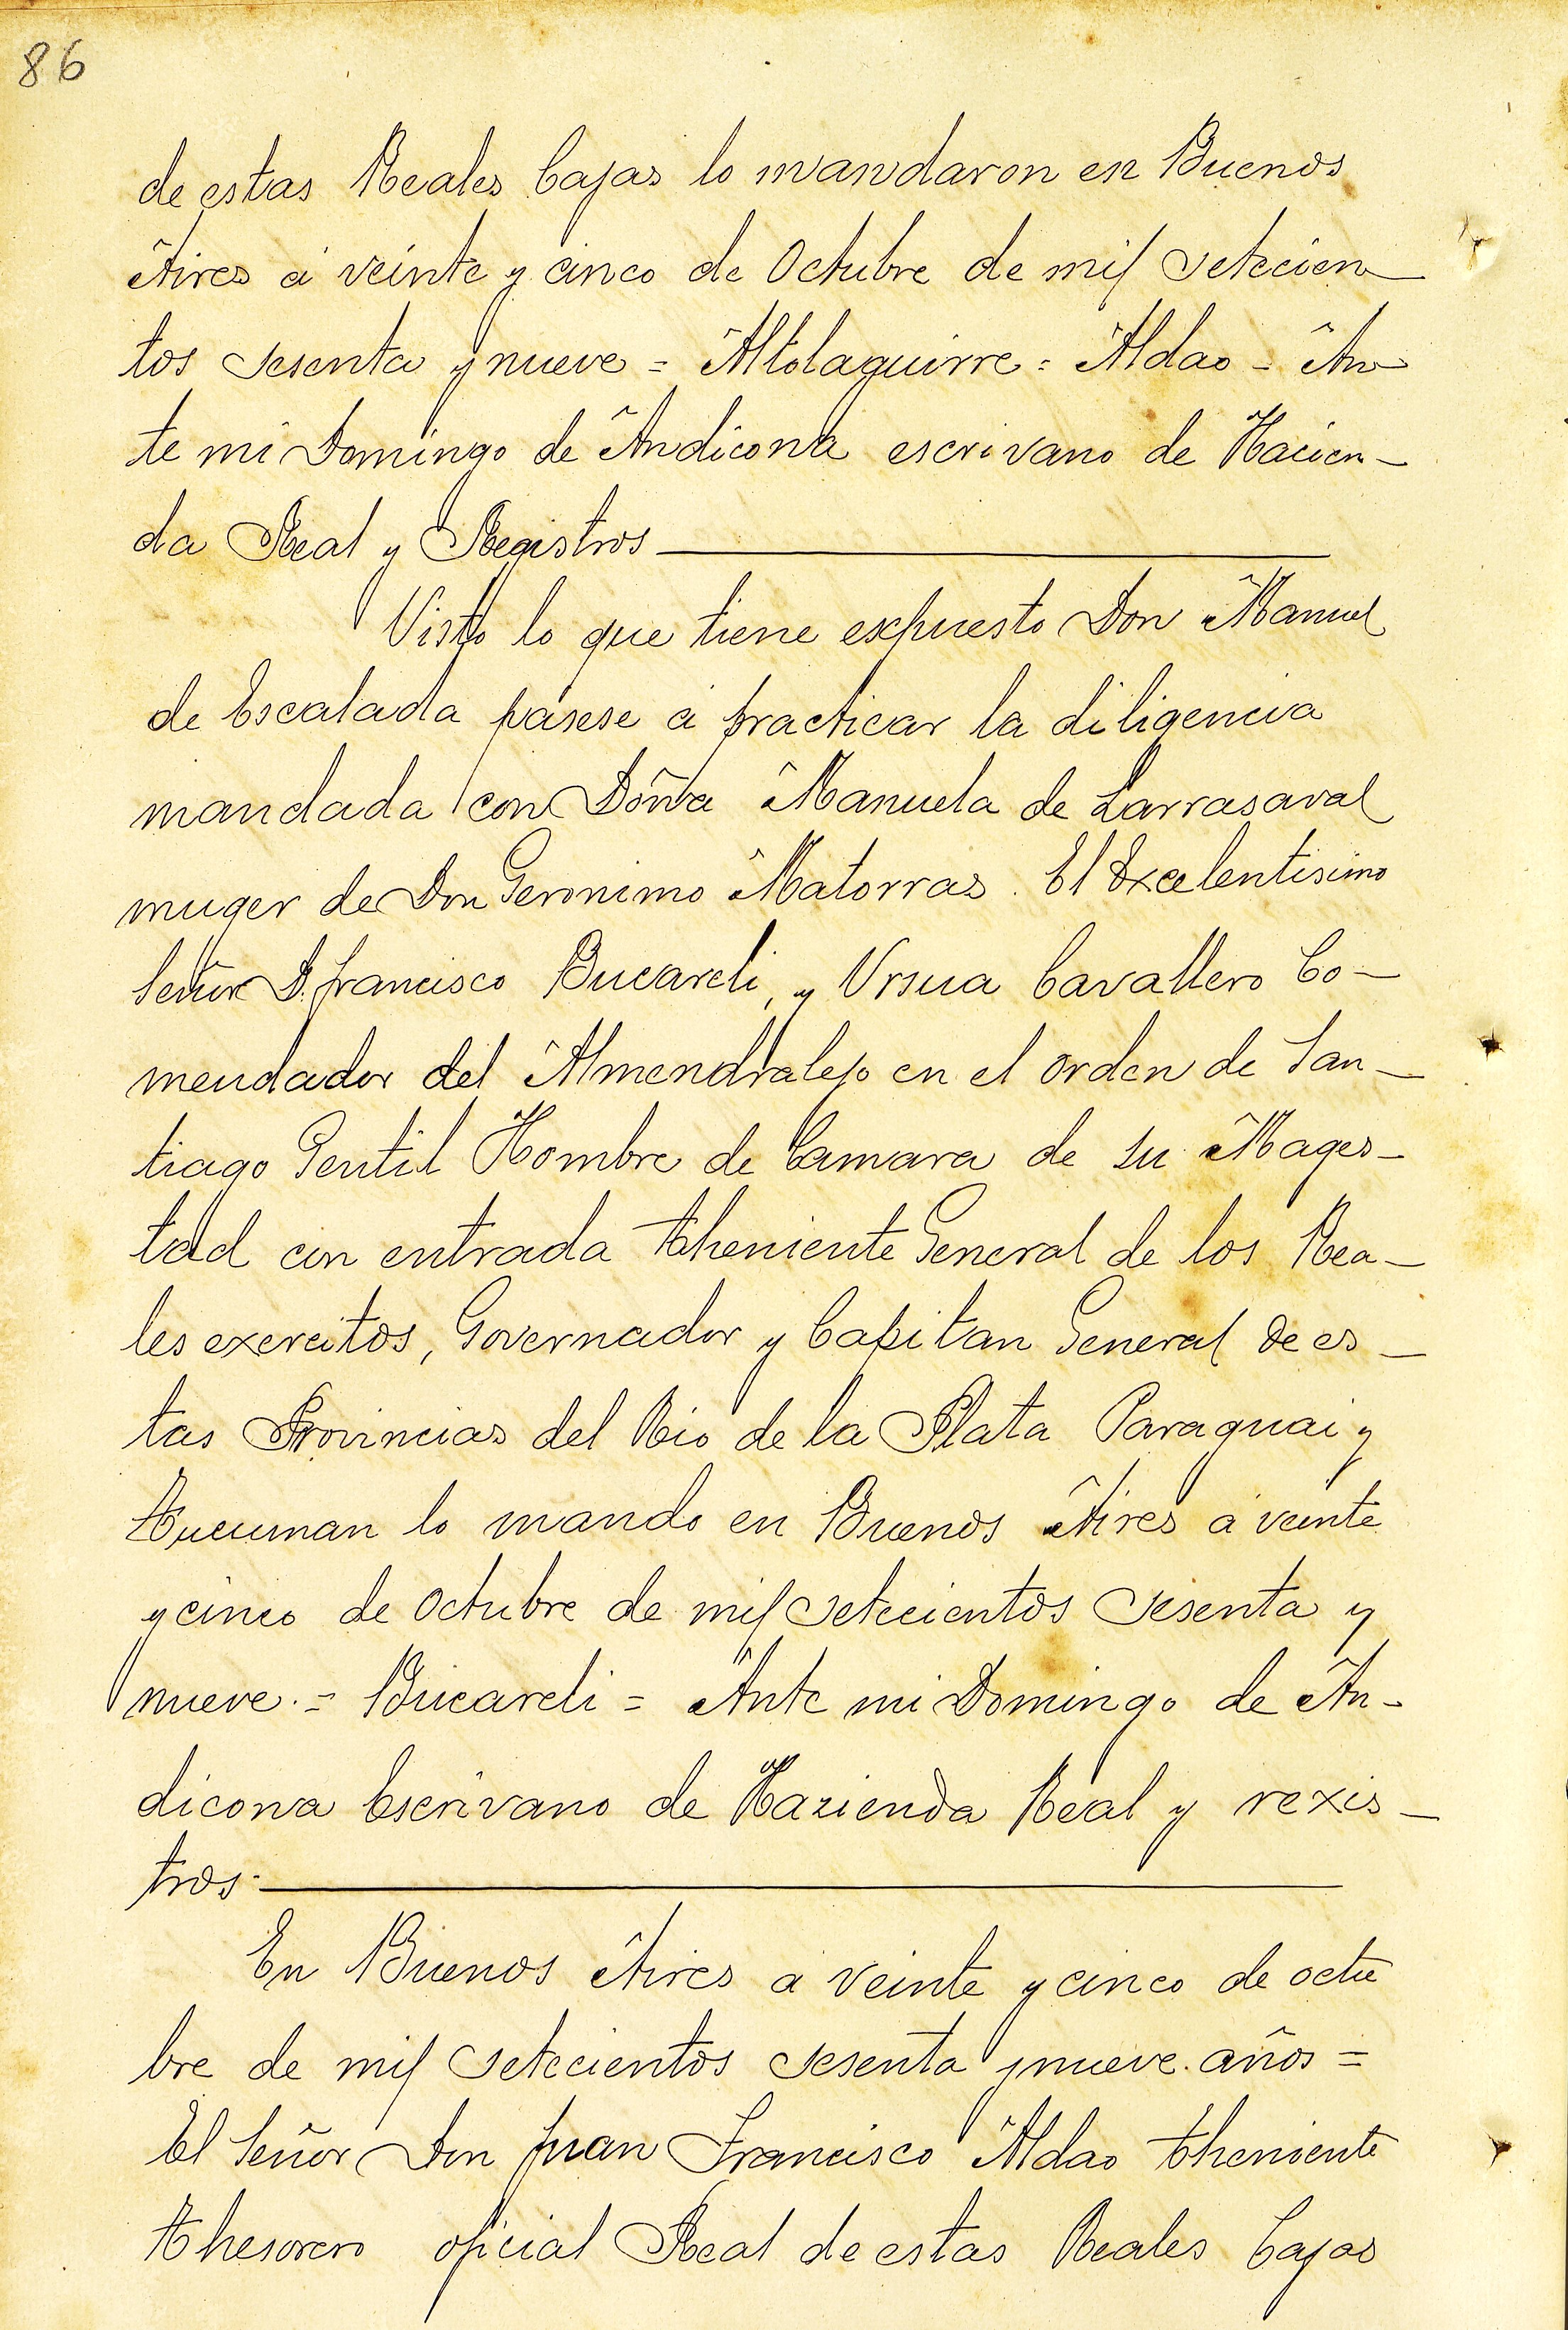 86
de estas Reales Cajas lo mandaron en Buenos
Aires á veinte y cinco de Octubre de mil setecien
tos sesenta y nueve = Altolaguirre = Aldao = An
te mi Domingo de Andicona escrivano de Hacien-
da Real y Registros
Visto lo que tiene expuesto Don Manuel
de Escalada pásese á practicar la diligencia
mandada con Doña Manuela de Larrasaval
muger de Don Geronimo Matorras. El Excelentisimo
Señor D. francisco Bucareli, y Ursua Cavallero Co-
mendador del Almendralejo en el orden de San-
tiago Gentil Hombre de Camara de su Mages-
tad con entrada Theniente General de los Rea-
les exercitos, Governador y Capitan General de es-
tas Provincias del Rio de la Plata Paraguai y
Tucuman lo mando en Buenos Aires á veinte
y cinco de Octubre de mil setecientos sesenta y
nueve. = Bucareli = Ante mi Domingo de An-
dicona Escrivano de Hazienda Real y rexis-
tros.
En Buenos Aires a veinte y cinco de octu
bre de mil setecientos sesenta y nueve años =
El Señor Don Juan Francisco Aldao theniente
Thesorero oficial Real de estas Reales Cajas